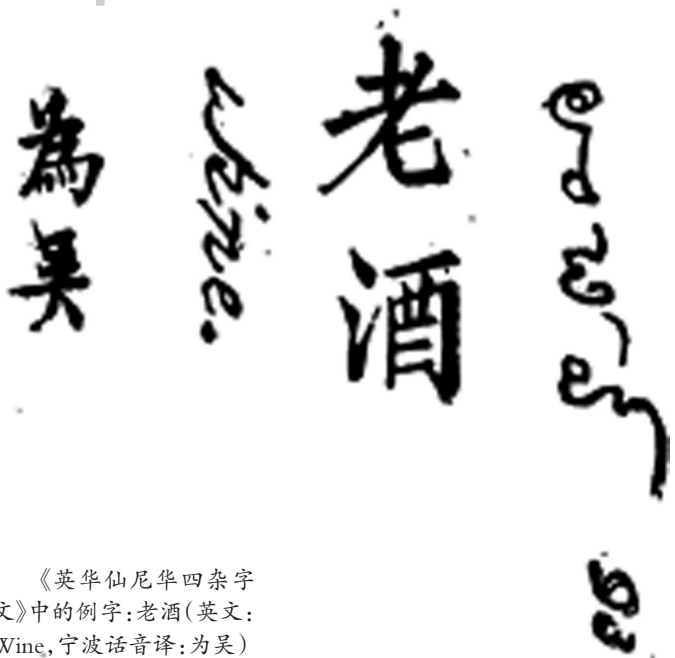 老酒
Wine.
為吴
《英华仙尼华四杂字
文》中的例字:老酒(英文:
Wine,宁波话音译:为吴)